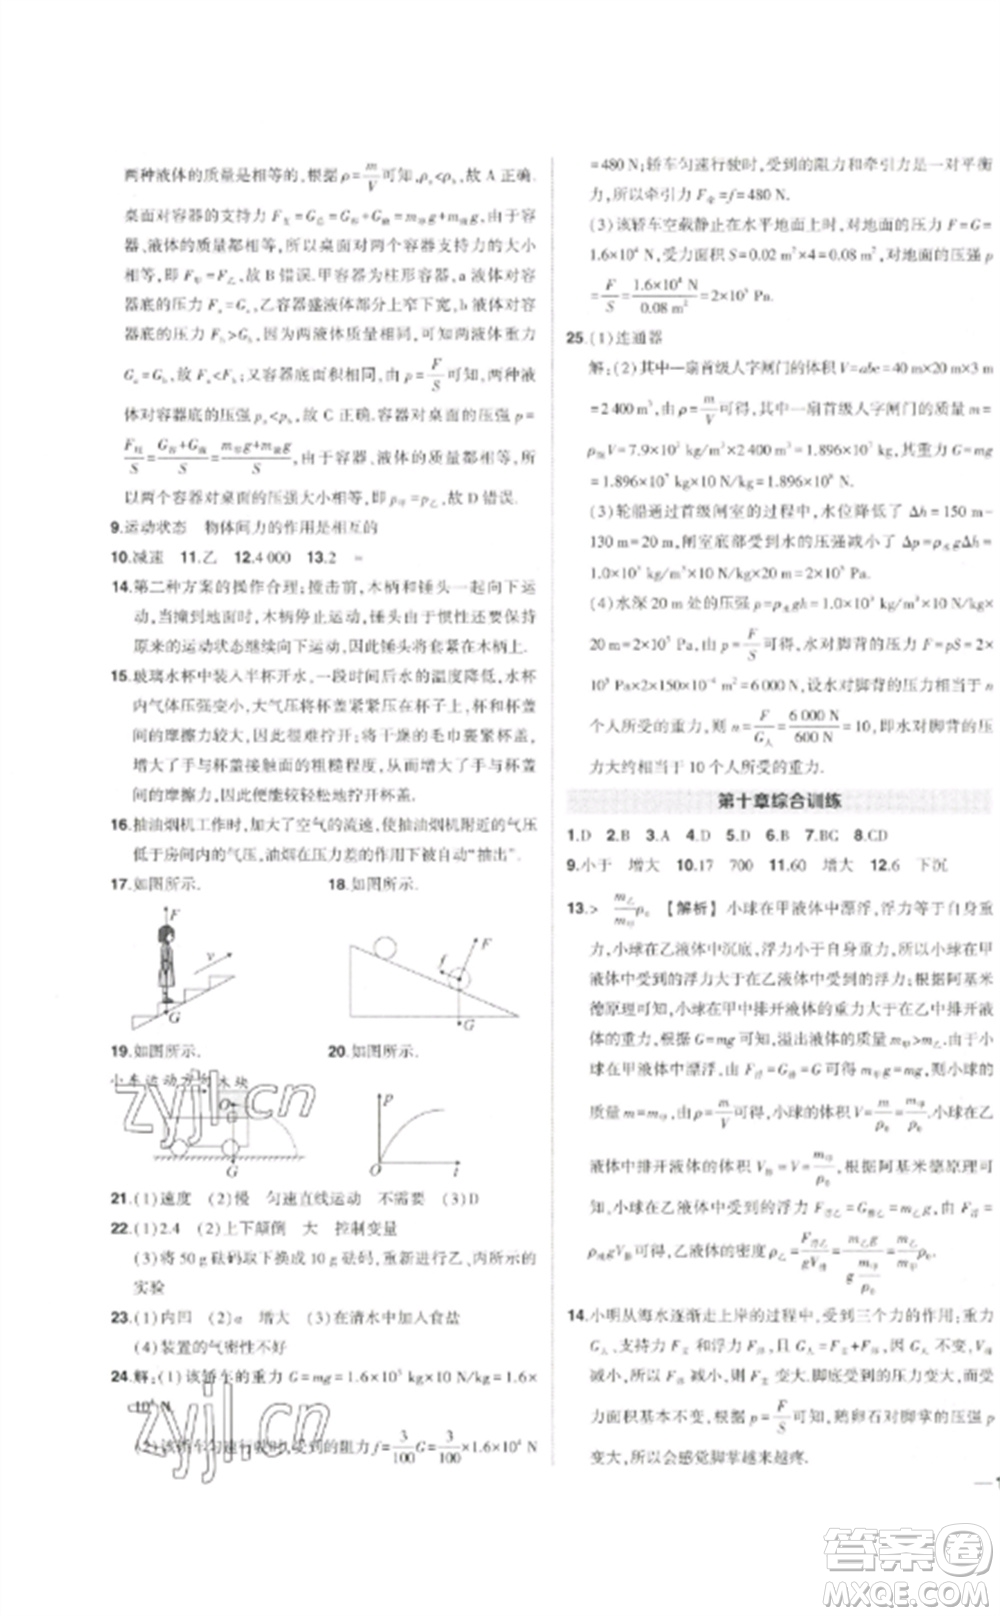 两种液体的质量是相等的,根据ρ=m/V可知,ρa<ρb,故 A 正确.
桌面对容器的支持力 F支=G总=G容+G液=m容g+m液g,由于容
器、液体的质量都相等,所以桌面对两个容器支持力的大小
相等,即 F甲=F乙,故 B 错误.甲容器为柱形容器,a 液体对
容器底的压力 Fa=Ga,乙容器盛液体的形状上宽下窄,b 液体对
容器底的压力 Fb>Gb,因为两液体质量相同,可知两液体重力
Ga=Gb,所以 Fa<Fb;又因容器底面积相同,由 p=F/S可知,两种液
体对容器底的压强 pa<pb,故 C 正确.容器对桌面的压强 p=
F压/S=(G容+G液)/S=(m容g+m液g)/S,由于容器、液体的质量都相等,所
以两个容器对桌面的压强大小相等,即 p甲=p乙,故 D 错误.
9.运动状态 物体间力的作用是相互的
10.减速 11.乙 12.4 000 13.2 =
14.第二种方案的操作合理;撞击前,木柄和锤头一起向下运
动,当撞到地面时,木柄停止运动,锤头由于惯性还要保持
原来的运动状态继续向下运动,因此锤头将套紧在木柄上.
15.玻璃水杯中装入半杯开水,一段时间后水的温度降低,水杯
内气体压强变小,大气压将杯盖紧紧压在杯子上,杯和杯盖
间的摩擦力较大,因此很难拧开;将干燥的毛巾裹紧杯盖,
增大了手与杯盖间接触面的粗糙程度,增大了手与杯盖间
的摩擦力,因此容易拧开杯盖.
16.抽油烟机工作时,加大了空气的流速,使抽油烟机附近的气压
低于房间内的气压,油烟在压力差的作用下被自动“抽出”.
17.如图所示. 18.如图所示.
F
v
G
F
f
G
19.如图所示. 20.如图所示.
小车运动方向 木块
O
G
p
O
t
21.(1)速度 (2)慢 匀速直线运动 不需要 (3)D
22.(1)2.4 (2)上下颠倒 大 控制变量
(3)将 50 g 砝码取下换成 10 g 砝码,重新进行乙、丙所示的
实验
23.(1)内凹 (2)a 增大 (3)在清水中加入食盐
(4)装置的气密性不好
24.解:(1)该轿车的重力 G=mg=1.6×10³ kg×10 N/kg=1.6×
10⁴ N
(2)该轿车匀速行驶时,受到的阻力 f=3/100 G=3/100×1.6×10⁴ N
=480 N;轿车匀速行驶时,受到的阻力和牵引力是一对平衡
力,所以牵引力 F牵=f=480 N.
(3)该轿车空载静止在水平地面上时,对地面的压力 F=G=
1.6×10⁴ N,受力面积 S=0.02 m²×4=0.08 m²,对地面的压强 p
=F/S=1.6×10⁴ N/0.08 m²=2×10⁵ Pa.
25.(1)连通器
解:(2)其中一扇首级人字闸门的体积 V=abc=40 m×20 m×3 m
=2 400 m³,由 ρ=m/V可得,其中一扇首级人字闸门的质量 m=
ρ钢V=7.9×10³ kg/m³×2 400 m³=1.896×10⁷ kg,重力 G=mg=
1.896×10⁷ kg×10 N/kg=1.896×10⁸ N.
(3)轮船通过首级闸室的过程中,水位降低了 Δh=150 m-
130 m=20 m,闸室底部受到水的压强减小了 Δp=ρ水gΔh=
1.0×10³ kg/m³×10 N/kg×20 m=2×10⁵ Pa.
(4)水深 20 m 处的压强 p=ρ水gh=1.0×10³ kg/m³×10 N/kg×
20 m=2×10⁵ Pa,由 p=F/S可得,水对脚背的压力 F=pS=2×
10⁵ Pa×2×150×10⁻⁴ m²=6 000 N,设水对脚背的压力相当于 n
个人所受的重力,则 n=F/G人=6 000 N/600 N=10,即水对脚背的压
力大约相当于 10 个人所受的重力.
第十章综合训练
1.D 2.B 3.A 4.D 5.D 6.B 7.BC 8.CD
9.小于 增大 10.17 700 11.60 增大 12.6 下沉
13.> m乙/m甲 ρ0 【解析】小球在甲液体中漂浮,浮力等于自身重
力,小球在乙液体中沉底,浮力小于自身重力,所以小球在甲
液体中受到的浮力大于在乙液体中受到的浮力;根据阿基米
德原理可知,小球在甲中排开液体的重力大于在乙中排开液
体的重力,根据 G=mg 可知,溢出液体的质量 m甲>m乙.由于小
球在甲液体中漂浮,即 F浮=G排=G,所以 m甲g=mg,所以小球的
质量 m=m甲,由 ρ=m/V可得,小球的体积 V=m/ρ0=m甲/ρ0,小球在乙
液体中排开液体的体积 V排=V=m甲/ρ0,根据阿基米德原理可
知,小球在乙液体中受到的浮力 F浮乙=G排乙=m乙g,由 F浮=
ρ液gV排可得,乙液体的密度 ρ乙=F浮乙/gV排=m乙g/(g m甲/ρ0)=m乙/m甲 ρ0.
14.小明从海水逐渐走上岸的过程中,受到三个力的作用:重力
G人、支持力 F支和浮力 F浮,且 G人=F支+F浮,因为 G人不变,F浮
减小,所以 F支变大,脚底受到的压力变大,受
力面积基本不变,根据 p=F/S可知,鹅卵石对脚掌的压强 p
变大,所以会感觉脚掌越来越疼.
zyjl.cn
zyjl.cn
答案圈
MXQE.COM